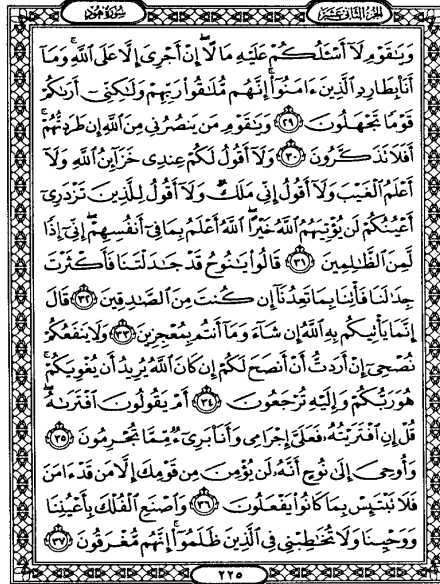 سورة هود
الجزء الثاني عشر
وَيَٰقَوْمِ لَآ أَسْـَٔلُكُمْ عَلَيْهِ مَالًا ۖ إِنْ أَجْرِىَ إِلَّا عَلَى ٱللَّهِ ۚ وَمَآ
أَنَا۠ بِطَارِدِ ٱلَّذِينَ ءَامَنُوٓا۟ ۚ إِنَّهُم مُّلَٰقُوا۟ رَبِّهِمْ وَلَٰكِنِّىٓ أَرَىٰكُمْ
قَوْمًا تَجْهَلُونَ ٢٩ وَيَٰقَوْمِ مَن يَنصُرُنِى مِنَ ٱللَّهِ إِن طَرَدتُّهُمْ ۚ
أَفَلَا تَذَكَّرُونَ ٣٠ وَلَآ أَقُولُ لَكُمْ عِندِى خَزَآئِنُ ٱللَّهِ وَلَآ
أَعْلَمُ ٱلْغَيْبَ وَلَآ أَقُولُ إِنِّى مَلَكٌ وَلَآ أَقُولُ لِلَّذِينَ تَزْدَرِىٓ
أَعْيُنُكُمْ لَن يُؤْتِيَهُمُ ٱللَّهُ خَيْرًا ۖ ٱللَّهُ أَعْلَمُ بِمَا فِىٓ أَنفُسِهِمْ ۖ إِنِّىٓ إِذًا
لَّمِنَ ٱلظَّٰلِمِينَ ٣١ قَالُوا۟ يَٰنُوحُ قَدْ جَٰدَلْتَنَا فَأَكْثَرْتَ
جِدَٰلَنَا فَأْتِنَا بِمَا تَعِدُنَآ إِن كُنتَ مِنَ ٱلصَّٰدِقِينَ ٣٢ قَالَ
إِنَّمَا يَأْتِيكُم بِهِ ٱللَّهُ إِن شَآءَ وَمَآ أَنتُم بِمُعْجِزِينَ ٣٣ وَلَا يَنفَعُكُمْ
نُصْحِىٓ إِنْ أَرَدتُّ أَنْ أَنصَحَ لَكُمْ إِن كَانَ ٱللَّهُ يُرِيدُ أَن يُغْوِيَكُمْ ۚ
هُوَ رَبُّكُمْ وَإِلَيْهِ تُرْجَعُونَ ٣٤ أَمْ يَقُولُونَ ٱفْتَرَىٰهُ ۖ
قُلْ إِنِ ٱفْتَرَيْتُهُۥ فَعَلَىَّ إِجْرَامِى وَأَنَا۠ بَرِىٓءٌ مِّمَّا تُجْرِمُونَ ٣٥
وَأُوحِىَ إِلَىٰ نُوحٍ أَنَّهُۥ لَن يُؤْمِنَ مِن قَوْمِكَ إِلَّا مَن قَدْ ءَامَنَ
فَلَا تَبْتَئِسْ بِمَا كَانُوا۟ يَفْعَلُونَ ٣٦ وَٱصْنَعِ ٱلْفُلْكَ بِأَعْيُنِنَا
وَوَحْيِنَا وَلَا تُخَٰطِبْنِى فِى ٱلَّذِينَ ظَلَمُوٓا۟ ۚ إِنَّهُم مُّغْرَقُونَ ٣٧
٢٢٥